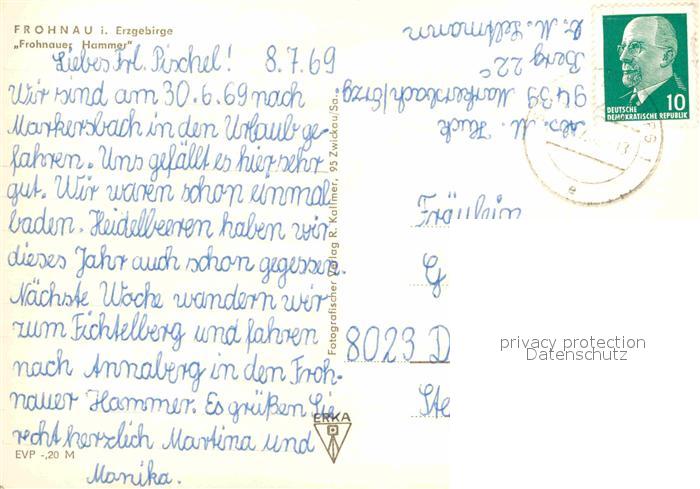 FROHNAU i. Erzgebirge
„Frohnauer Hammer“
Liebes Frl. Pischel! 8.7.69
Wir sind am 30.6.69 nach
Markersbach in den Urlaub ge-
fahren. Uns gefällt es hier sehr
gut. Wir waren schon einmal
baden. Heidelbeeren haben wir
dieses Jahr auch schon gegessen.
Nächste Woche wandern wir
zum Fichtelberg und fahren
nach Annaberg in den Froh-
nauer Hammer. Es grüßen Sie
recht herzlich Martina und
Monika.
EVP -,20 M
Fotografischer Verlag R. Kallmer, 95 Zwickau/Sa.
ERKA
Abs. M.
9439 Markersbach/Erzg
Berg 22c
b. M.
10
DEUTSCHE
DEMOKRATISCHE REPUBLIK
e
8023 D
privacy protection
Datenschutz